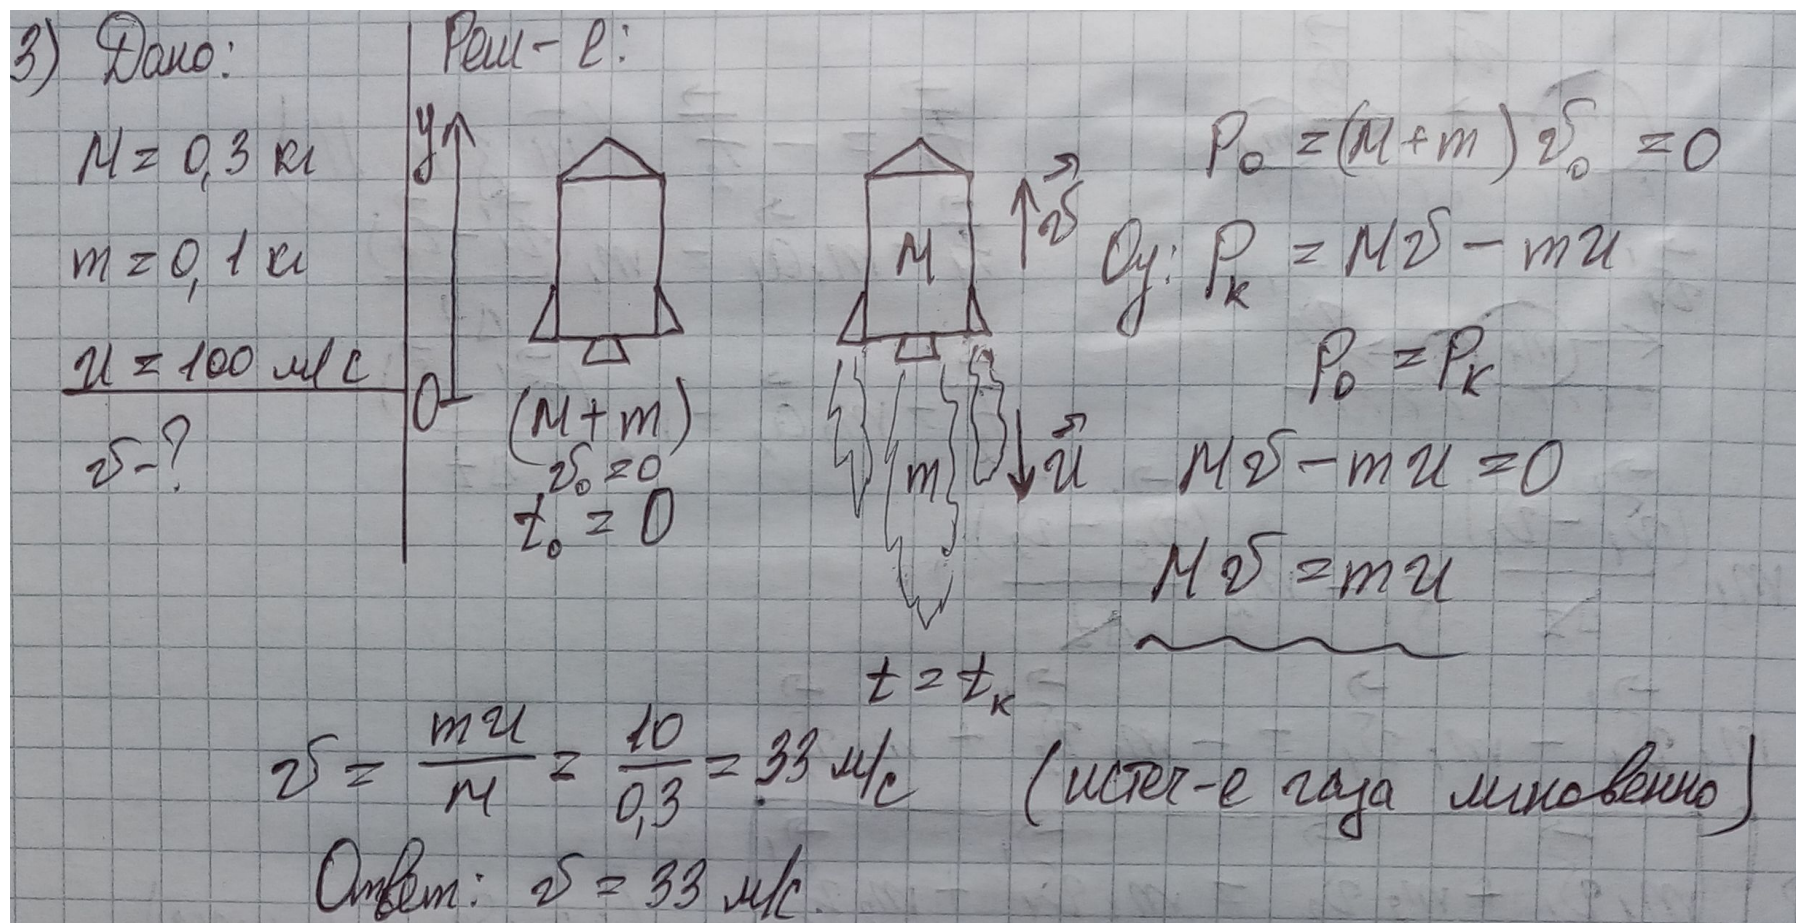 3) Дано:
M = 0,3 кг
m = 0,1 кг
u = 100 м/с
v - ?
Реш-е:
y
0
(M + m)
v₀ = 0
t₀ = 0
M
v⃗
m
u⃗
t = tк
P₀ = (M + m) v₀ = 0
Oy: Pк = Mv - mu
P₀ = Pк
Mv - mu = 0
Mv = mu
v = mu/M = 10/0,3 = 33 м/с
(истеч-е газа мгновенно)
Ответ: v = 33 м/с.